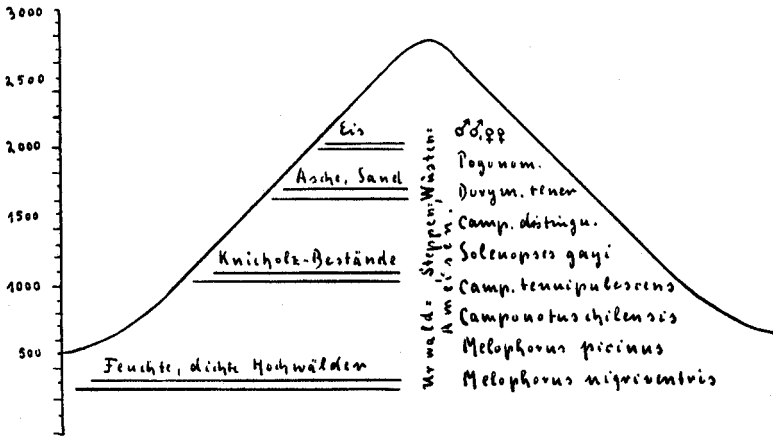 3000
2500
2000
1500
1000
500
Eis
Asche, Sand
Knieholz-Bestände
Feuchte, dichte Hochwälder
Urwald= Steppen=Wüsten=
Ameisen.
♂♂,♀♀
Pogonom.
Dorym. tener
Camp. distingu.
Solenopses gayi
Camp. tenuipubescens
Camponotus chilensis
Melophorus picinus
Melophorus nigriventris